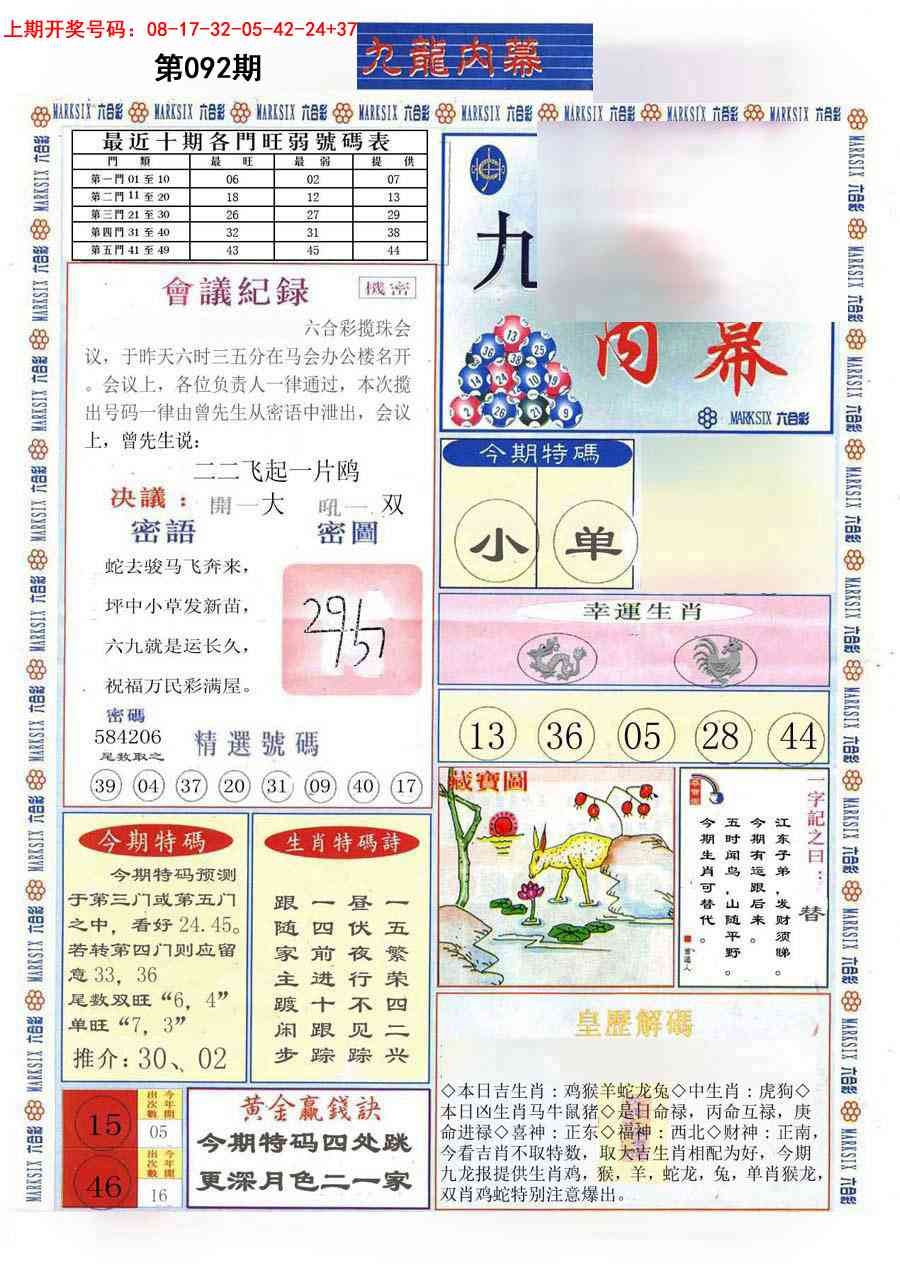 上期开奖号码：08-17-32-05-42-24+37
第092期
九龍内幕
MARKSIX 六合彩
最近十期各門旺弱號碼表
門 類 最 旺 最 弱 提 供
第一門 01 至 10 06 02 07
第二門 11 至 20 18 12 13
第三門 21 至 30 26 27 29
第四門 31 至 40 32 31 38
第五門 41 至 49 43 45 44
會議紀録
機密
六合彩揽珠会
议，于昨天六时三五分在马会办公楼名开
。会议上，各位负责人一律通过，本次揽
出号码一律由曾先生从密语中泄出，会议
上，曾先生说：
二二飞起一片鸥
决議：開一大 吼一双
密語
密圖
蛇去骏马飞奔来，
坪中小草发新苗，
六九就是运长久，
祝福万民彩满屋。
密碼
584206
尾数取之
精選號碼
39 04 37 20 31 09 40 17
九
内幕
13
36 38 25
14 24 10 19
2 26 21 9
MARKSIX 六合彩
今期特碼
小 单
幸運生肖
13 36 05 28 44
藏寶圖
一字記之曰：
替
江东子弟，发财须睇。
今期有运跟后来。
五时闻鸟，山随平野。
今期生肖可替代。
今期特碼
今期特码预测
于第三门或第五门
之中，看好24.45。
若转第四门则应留
意33，36
尾数双旺“6，4”
单旺“7，3”
推介：30、02
生肖特碼詩
一五繁荣四二兴
昼伏夜行不见踪
一四前进十跟踪
跟随家主踱闲步
15
今年開出次數
05
46
今年開出次數
16
黄金赢錢訣
今期特码四处跳
更深月色二一家
皇歷解碼
◇本日吉生肖：鸡猴羊蛇龙兔◇中生肖：虎狗◇
本日凶生肖马牛鼠猪◇是日命禄，丙命互禄，庚
命进禄◇喜神：正东◇福神：西北◇财神：正南，
今看吉肖不取特数，取大吉生肖相配为好，今期
九龙报提供生肖鸡，猴，羊，蛇龙，兔，单肖猴龙，
双肖鸡蛇特别注意爆出。